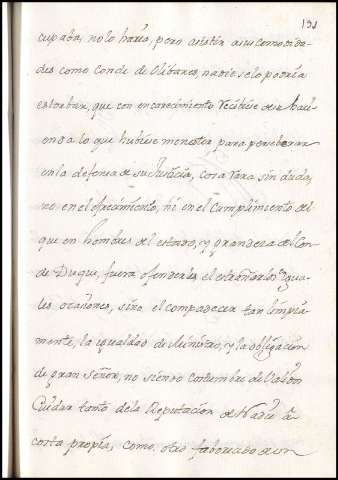 131
cupaba, no lo haria, pero asistir a sus comodida-
des como Conde de Olibares, nadie selo podria
estorbar, que con encarecimiento Recibiese de su haci-
enda lo que hubiese menester para perseberar
en la defensa de su Justicia, cosa Rara sin duda,
no en el ofrecimiento, ni en el Cumplimiento del
que en hombres del estado, y grandeza del Con-
de Duque, fuera ofenderles el estrañarlo en igua-
les ocasiones, sino el compadecer tan limpia-
mente, la igualdad de Ministro, y la obligacion
de gran Señor, no siendo costumbre de Valido
Cuidar tanto dela Reputacion de Nadie à
costa propia, como otro faborecido de un